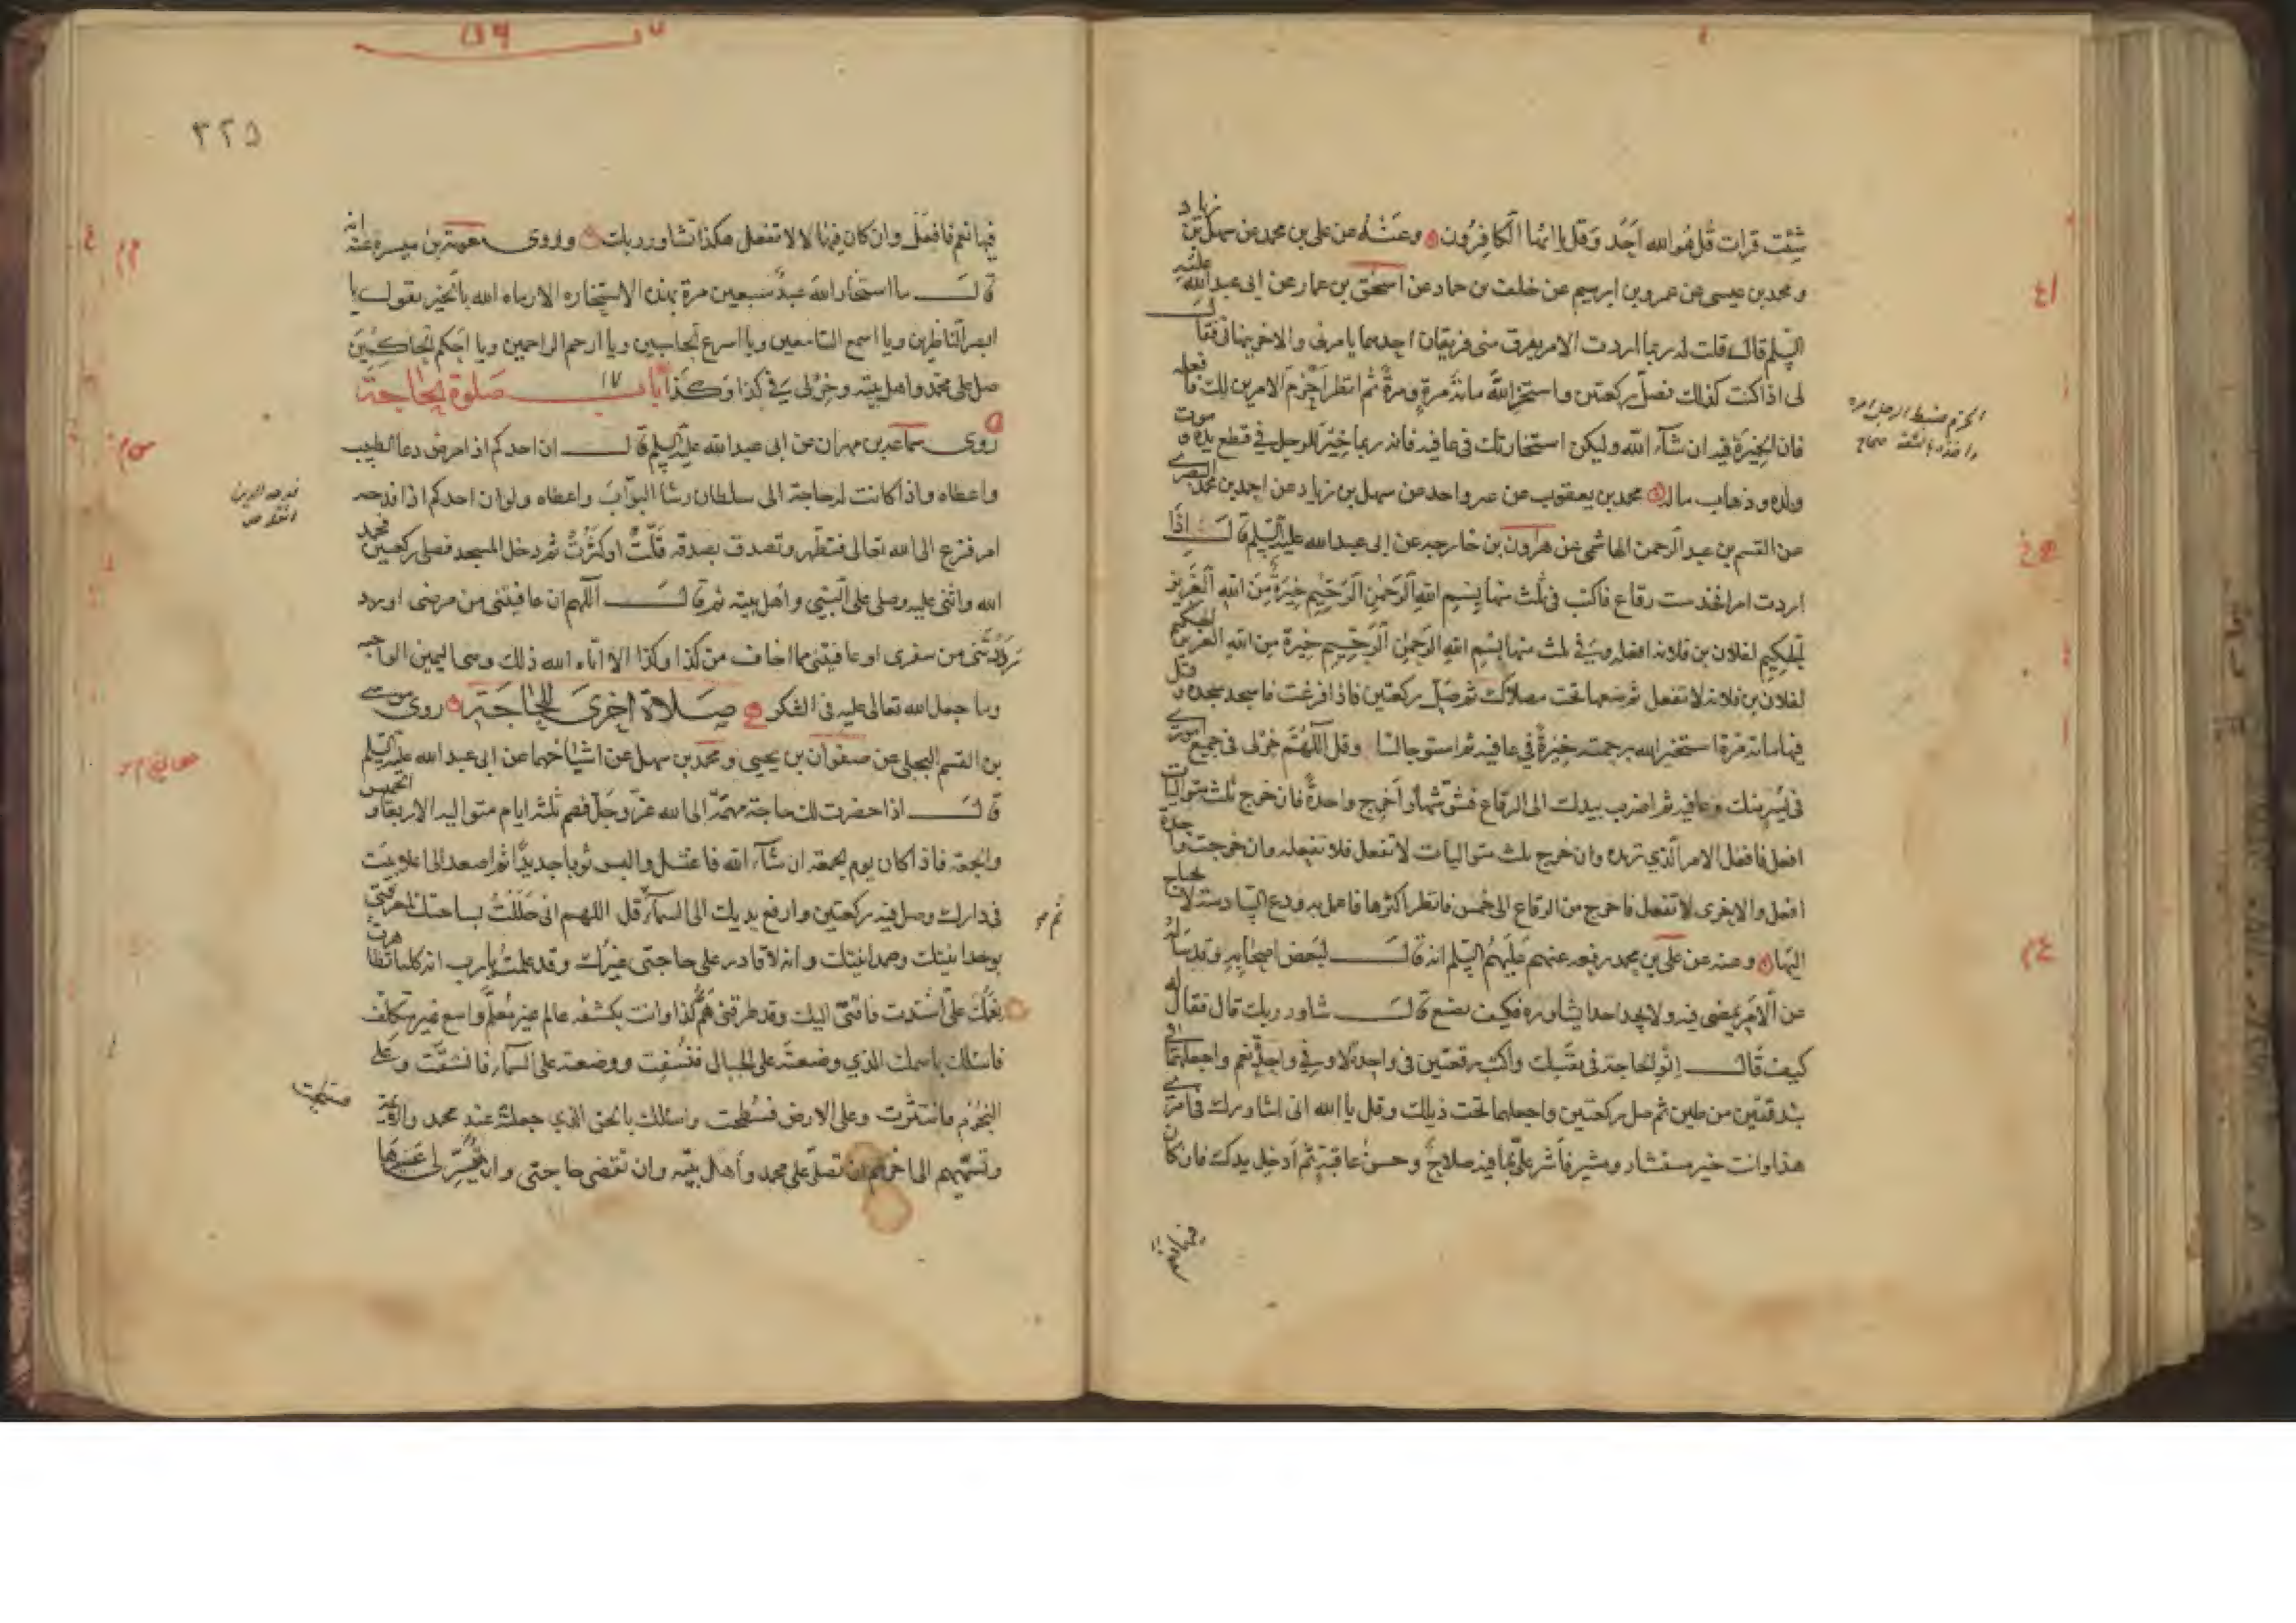 شِئت قرات قُل هُو الله اَحَد وَقل يا ايها الكافِرُون وعَنْهُ عن علي بن محمد عن سهل بن زياد
و محمد بن عيسى عن عمرو بن ابرهيم عن خلف بن حماد عن اسحٰق بن عمار عن ابى عبد الله عليه
السلم قال قلت له ربما اردت الامر يفرق منى فريقان احدهما يامرنى والاخر ينهانى فقال
لى اذا كنت كذلك فصل ركعتين واستخر الله مائة مرة ومرة ثم انظر احزم الامرين لك فافعله
فان الخِيَرَة فيه ان شآء الله وليكن استخارتك فى عافيه فانه ربما خِيْرَ للرجل فى قطع يده و موت
ولده وذهاب ماله محمد بن يعقوب عن غير واحد عن سهل بن زياد عن احمد بن محمد البصرى
عن القسم بن عبد الرحمن الهاشمى عن هرون بن خارجه عن ابى عبد الله عليه السلم قال اذا
اردت امرا فخذ ست رقاع فاكتب فى ثلث منها بِسْمِ اللهِ الرَّحمٰنِ الرَّحِيْمِ خِيَرَةٌ مِنَ اللهِ العَزِيزِ
الحَكِيمِ لفلان بن فلانه افعله وفى ثلث منها بِسْمِ اللهِ الرَّحمٰنِ الرَّحِيْمِ خِيرَة مِنَ اللهِ العزيز الحكيم
لفلان بن فلانه لا تفعل ثم ضعها تحت مصلاك ثم صل ركعتين فاذا فرغت فاسجد سجده وقل
فيها مائه مرة استخير الله برحمته خِيَرَةً فى عافيه ثم استو جالسًا وقل اللهُمَّ خِرْلى فى جميع امورى
فى يُسْرٍ منك وعافيه ثم اضرب بيدك الى الرقاع فشوّشها واَخرِج واحدةً فان خرج ثلث متواليات
افعل فافعل الامر الذي تريده وان خرج ثلث متواليات لا تفعل فلا تفعله وان خرجت واحدة
افعل والاخرى لا تفعل فاخرج من الرقاع الى خمس فانظر اكثرها فاعمل به ودع السادسة لا تحتاج
اليها وعنه عن على بن محمد رفعه عنهم عَلَيْهِمُ السَّلم انه قال لبَعض اصحٰابِهِ وقد سَاَله
عن الاَمر يمضى فيه ولا يجد احدا يشاوره فكيف يصنع قال شاور ربك قال فقال له
كيف قال اِنْوِ الحاجة فى نفسك واكتب رقعتين فى واحِدةٍ لا وفى واحدةٍ نعم واجعلهما فى
بندقتين من طين ثم صل ركعتين واجعلهما تحت ذيلك وقل يا الله انى اشاورك فى امرى
هذا وانت خير مستشار ومشير فاَشر علىّ بما فيه صلاحٌ وحسنُ عاقبةٍ ثم اَدخل يدك فان كان
فيها نعم
الحزم ضبط الرجل امره
واخذه بالثقة صحاح
٣٢٥
فيها نعم فافعل وان كان فيها لا لا تفعل هكذا تشاور ربك وروى معٰوية بن ميسرة عنه انه
قال ما استخار اللهَ عبدٌ سبعين مرة بهذه الاستخاره الا رماه الله بالخير يقول يا
ابصر الناظرين ويا اسمع السامعين ويا اسرع الحاسبين ويا ارحم الراحمين ويا احكم الحاكمِيْنَ
صل على محمد واهل بيته وخِرْلى فى كذا وكذا باب ١٧ صَلوة الحٰاجة
روى سماعه بن مهران عن ابى عبد الله عليه السلم قال ان احدكم اذا مرض دعا الطبيب
واعطاه واذا كانت له حاجة الى سلطان رشا البوّابَ واعطاه ولو ان احدكم اذا فدحه
امر فزع الى الله تعالى فتطهر وتصدق بصدقه قَلَّتْ اوكَثُرَتْ ثم دخل المسجد فصلى ركعتين فحمد
الله واثنى عليه وصلى على النبي واهل بيته ثم قال اللّٰهم ان عافيتنى من مرضى او رد
رَدَدْتَنى من سفرى او عافيتنى مما اخاف من كذا وكذا الا اتاه الله ذلك وهى اليمين الواجبه
وما جعل الله تعالى عليه فى الشكر صَلاة اخرى للحٰاجَة روى موسى
بن القسم البجلى عن صفوان بن يحيى و محمد بن سهل عن اشياخهما عن ابى عبد الله عليه السلم
قال اذا حضرت لك حاجة مهمّة الى الله عزّ وجلّ فصم ثلثه ايام متواليه الاربعا و الخميس
والجمعة فاذا كان يوم الجمعة ان شآء الله فاغتسل والبس ثوبا جديدًا ثم اصعد الى اعلا بيت
فى دارك وصل فيه ركعتين وارفع يديك الى السمآء ثم قل اللهم انى حَلَلْتُ بساحتك لمعرفتى
بوحدانيتك وصمدانيتك وانه لا قادر على حاجتى غيرك وقد علمت يا رب انه كلما تظاهرت
نعمتك علىّ اشتدت فاقتى اليك وقد طرقنى هَمّ كذا وانت بكشفه عالم غير مُعلّم واسع غير متكلف
فاسئلك باسمك الذي وضعته على الجبال فنسفت ووضعته على السمآء فانشقّت وعلى
النجوم فانتثرت وعلى الارض فسُطحت واسئلك بالحق الذي جعلته عند محمد والائمه
وتسمّيهم الى اخرهم ان تصلّى على محمد واهل بيته وان تقضى حاجتى وان تُيَسّر لى عَسيرهَا
فدحه الدين
اثقله ص